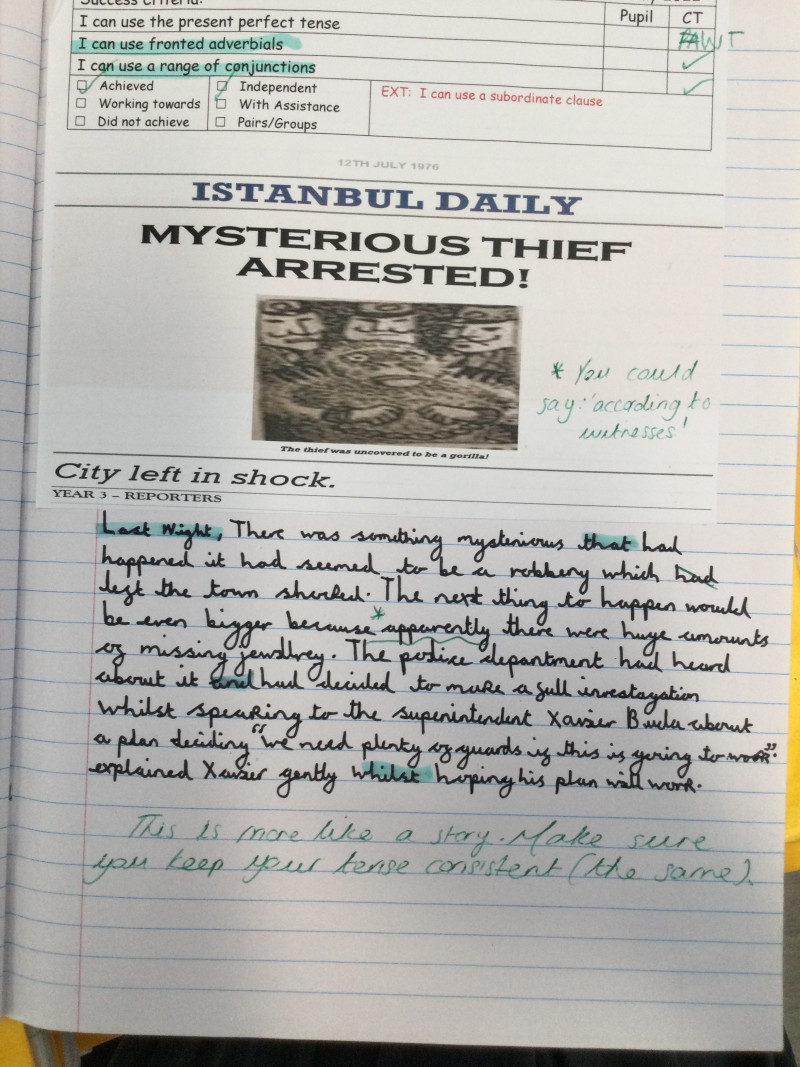 Success Criteria:
I can use the present perfect tense
Pupil
CT
I can use fronted adverbials
WT
I can use a range of conjunctions
Achieved
Independent
Working towards
With Assistance
Did not achieve
Pairs/Groups
EXT: I can use a subordinate clause
12TH JULY 1976
ISTANBUL DAILY
MYSTERIOUS THIEF
ARRESTED!
* You could
say: 'according to
witnesses'
The thief was uncovered to be a gorilla!
City left in shock.
YEAR 3 – REPORTERS
Last Night, There was something mysterious that had
happened it had seemed to be a robbery which had
left the town shocked. The next thing to happen would
be even bigger because * apparently there were huge amounts
of missing jewellrey. The police department had heard
about it and had decided to make a full investagation
whilst speaking to the superintendent Xavier Buda about
a plan deciding "we need plenty of guards if this is going to work".
explained Xavier gently whilst hoping his plan will work.
This is more like a story. Make sure
you keep your tense consistent (the same).